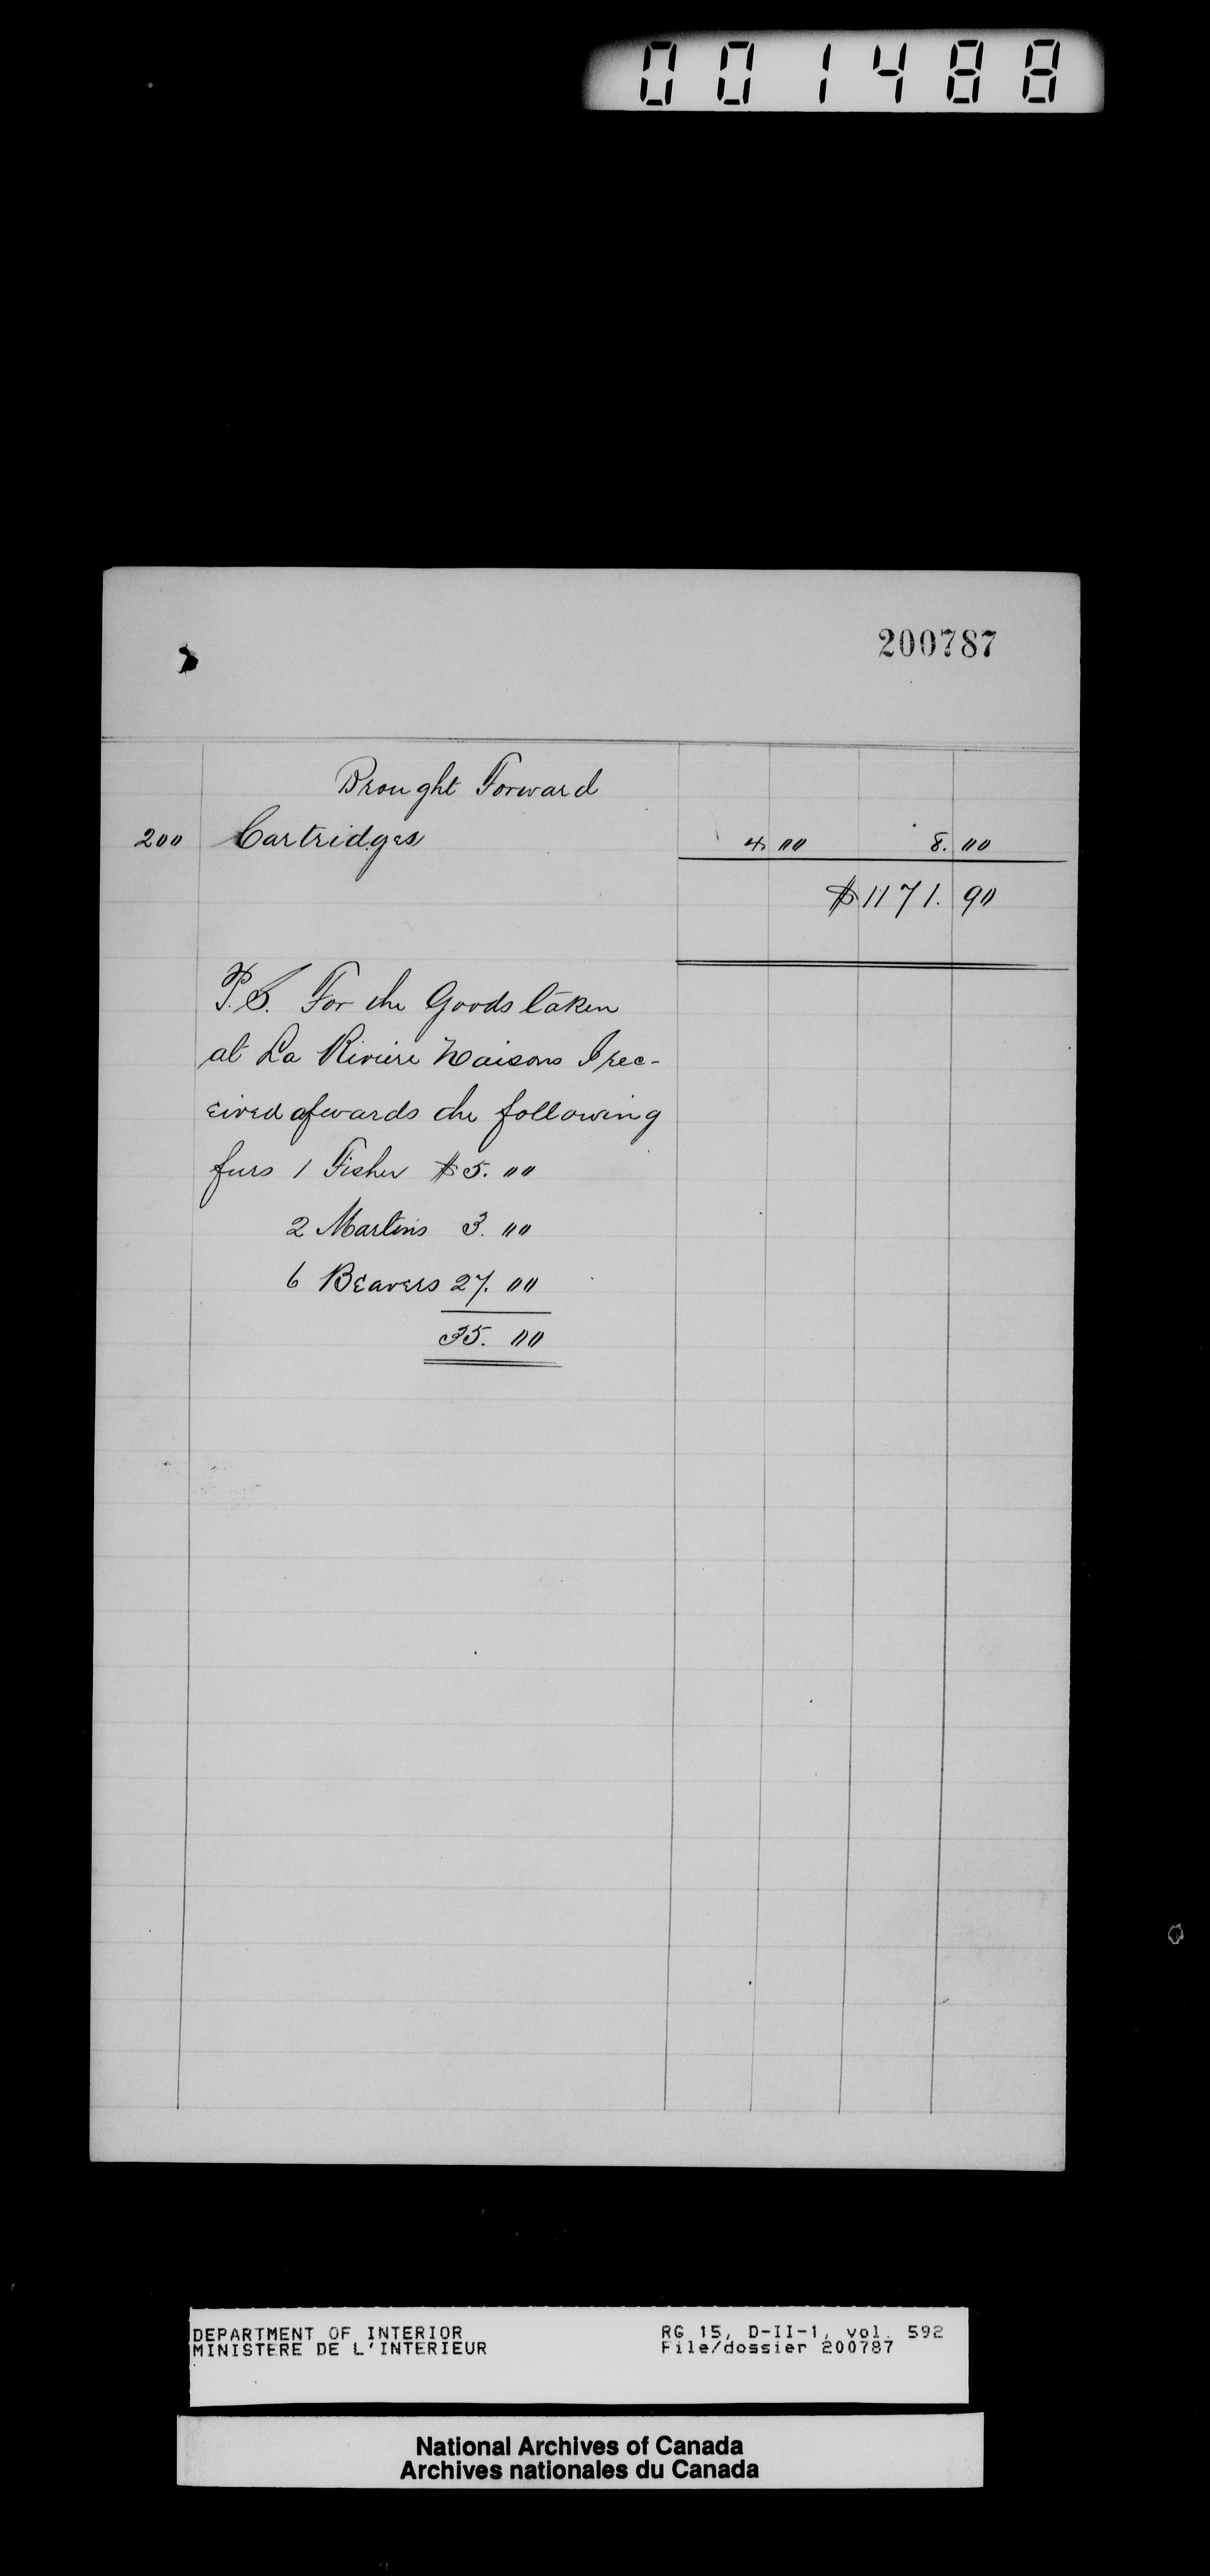 001488
200787
Brought Forward
200 Cartridges 4. 00 8. 00
$1171. 90
P.S. For the Goods taken
at La Riviere Maisons I rec-
eived afwards the following
furs 1 Fisher $5. 00
2 Martins 3. 00
6 Beavers 27. 00
35. 00
DEPARTMENT OF INTERIOR RG 15, D-II-1, vol. 592
MINISTERE DE L'INTERIEUR File/dossier 200787
National Archives of Canada
Archives nationales du Canada